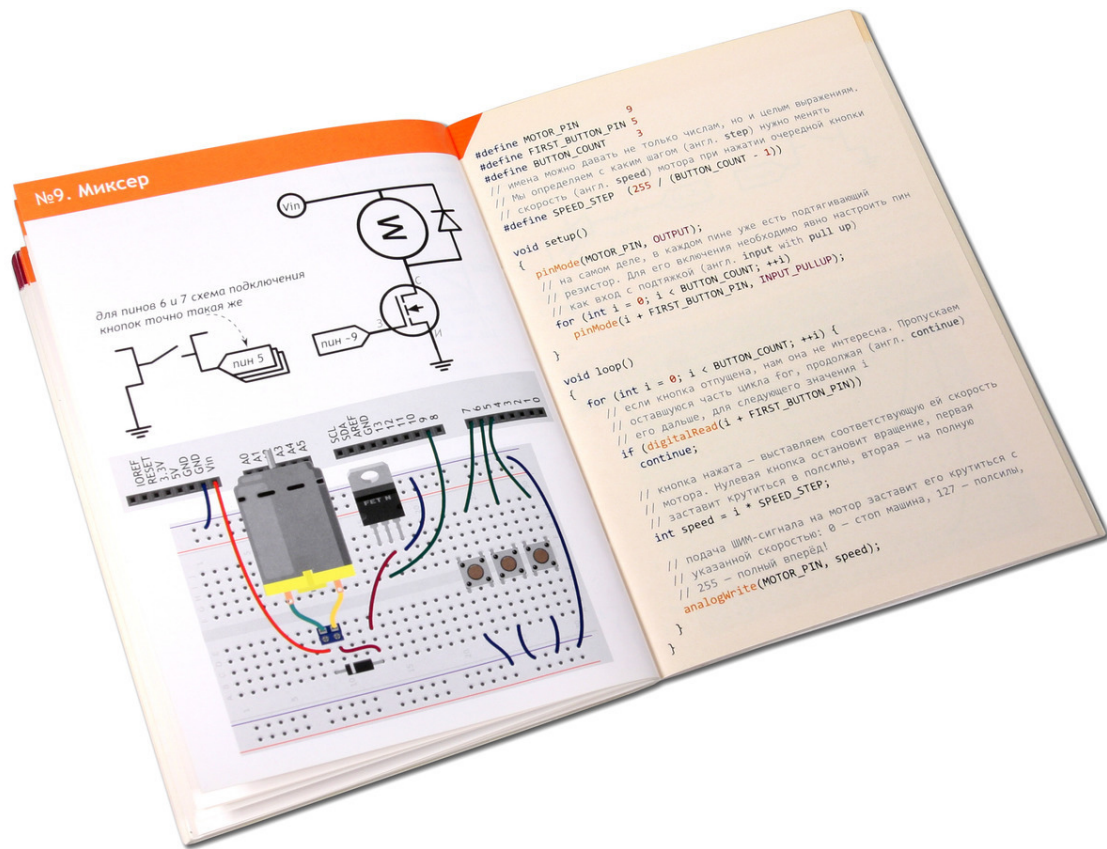 №9. Миксер
Vin
M
для пинов 6 и 7 схема подключения
кнопок точно такая же
пин 5
пин ~9
С
З
И
IOREF
RESET
3.3V
5V
GND
GND
Vin
A0
A1
A3
A4
A5
SCL
SDA
AREF
GND
13
12
11
10
9
8
7
6
5
4
3
2
1
0
FET N
#define MOTOR_PIN 9
#define FIRST_BUTTON_PIN 5
#define BUTTON_COUNT 3
// имена можно давать не только числам, но и целым выражениям.
// Мы определяем с каким шагом (англ. step) нужно менять
// скорость (англ. speed) мотора при нажатии очередной кнопки
#define SPEED_STEP (255 / (BUTTON_COUNT - 1))
void setup()
{
pinMode(MOTOR_PIN, OUTPUT);
// на самом деле, в каждом пине уже есть подтягивающий
// резистор. Для его включения необходимо явно настроить пин
// как вход с подтяжкой (англ. input with pull up)
for (int i = 0; i < BUTTON_COUNT; ++i)
pinMode(i + FIRST_BUTTON_PIN, INPUT_PULLUP);
}
void loop()
{
for (int i = 0; i < BUTTON_COUNT; ++i) {
// если кнопка отпущена, нам она не интересна. Пропускаем
// оставшуюся часть цикла for, продолжая (англ. continue)
// его дальше, для следующего значения i
if (digitalRead(i + FIRST_BUTTON_PIN))
continue;
// кнопка нажата — выставляем соответствующую ей скорость
// мотора. Нулевая кнопка остановит вращение, первая
// заставит крутиться в полсилы, вторая — на полную
int speed = i * SPEED_STEP;
// подача ШИМ-сигнала на мотор заставит его крутиться с
// указанной скоростью: 0 — стоп машина, 127 — полсилы,
// 255 — полный вперёд!
analogWrite(MOTOR_PIN, speed);
}
}